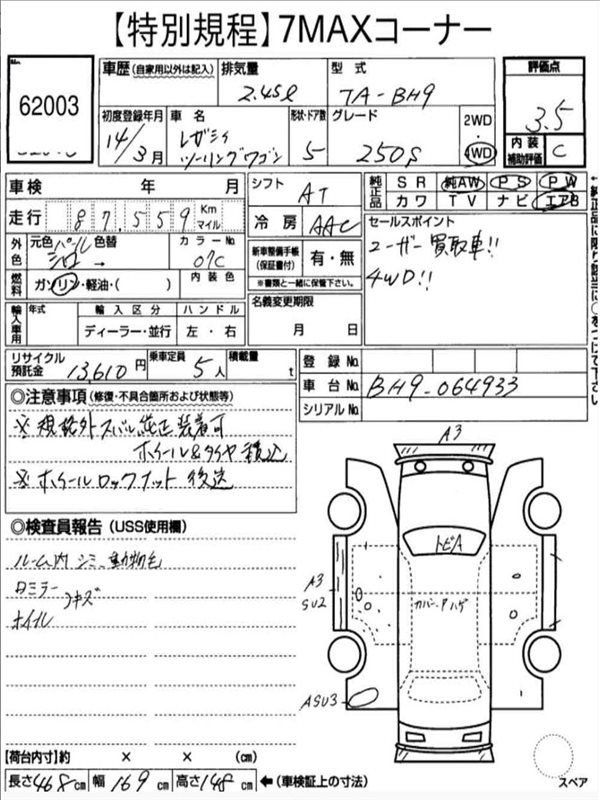 【特別規程】7MAXコーナー
No.
62003
車歴(自家用以外は記入)
排気量
型式
評価点
2.45ℓ
TA-BH9
3.5
初度登録年月
車名
形状・ドア数
グレード
2WD
4WD
14/3月
レガシィ
ツーリングワゴン
5
250S
内装
補助評価
C
車検 年 月
シフト
AT
純正品
SR
純AW
PS
PW
カワ
TV
ナビ
エアB
走行
87,559
Km
マイル
冷房
AAC
セールスポイント
ユーザー買取車!!
4WD!!
外色
元色
パール
シロ
色替
→
カラーNo
07C
新車整備手帳
(保証書付)
有・無
※書類と一緒に保管下さい。
燃料
ガソリン・軽油・( )
内装色
名義変更期限
月 日
輸入車用
年式
輸入区分
ハンドル
ディーラー・並行
左・右
リサイクル
預託金
13,610円
乗車定員
5人
積載量
t
登録No.
車台No.
BH9-064933
シリアルNo.
◎注意事項(修復・不具合箇所および状態等)
※規格外スバル純正装着可
ホイール&タイヤ積込
※ホイールロックナット後送
◎検査員報告(USS使用欄)
ルーム内 シミ、動物毛
日ミラー
キズ
ホイル
A3
トビA
A3
SU2
カバー・Pハゲ
ASU3
スペア
【荷台内寸】約 × × (cm)
長さ468cm
幅169cm
高さ148cm
←(車検証上の寸法)